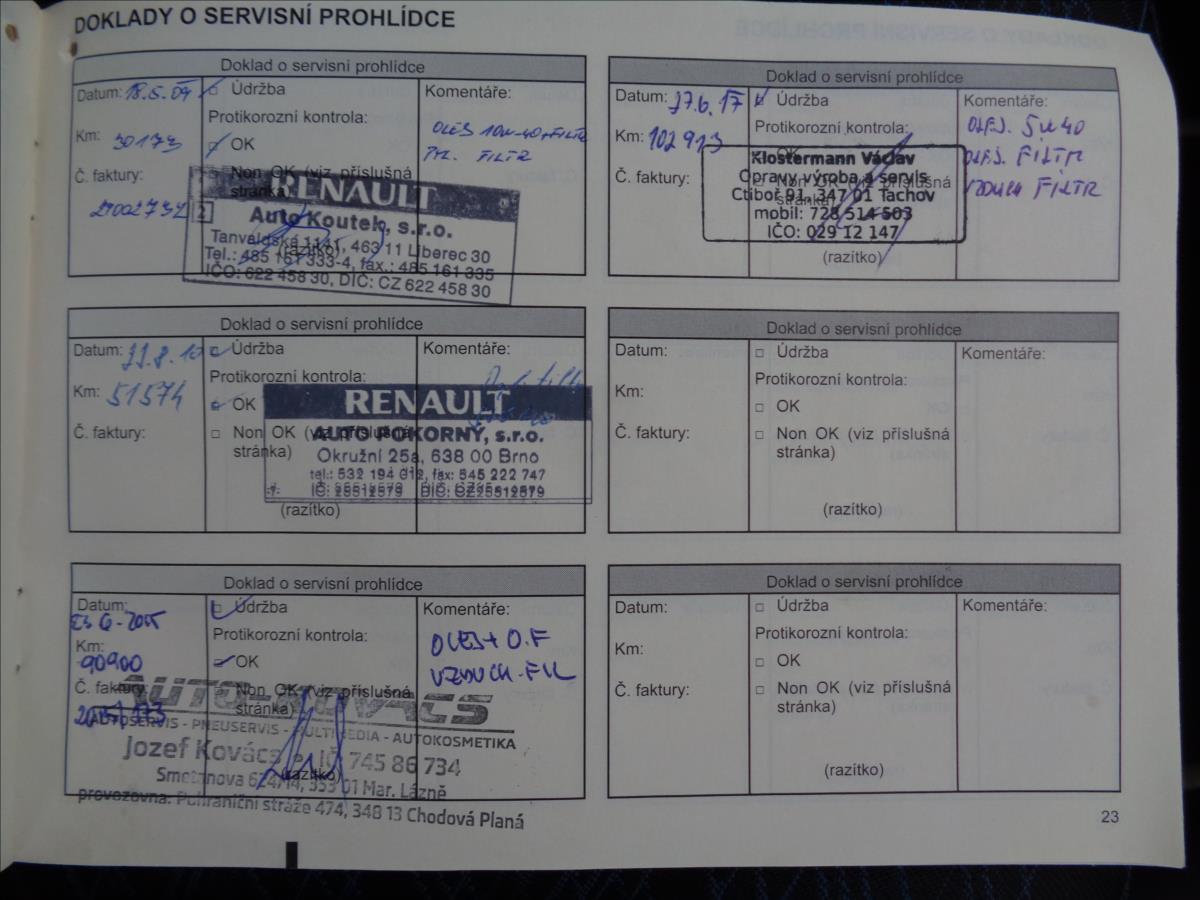 DOKLADY O SERVISNÍ PROHLÍDCE
Doklad o servisní prohlídce
Datum: 18.5.09
Údržba
Komentáře:
Protikorozní kontrola:
Km: 30173
OK
OLEJ 10W-40+FILTR
FILTR
Č. faktury:
Non OK (viz příslušná
stránka)
RENAULT
Auto Koutek, s.r.o.
Tanvaldská 1141, 463 11 Liberec 30
(razítko)
Tel.: 485 161 333-4, fax.: 485 161 335
IČO: 622 458 30, DIČ: CZ 622 458 30
Doklad o servisní prohlídce
Datum:
Údržba
Komentáře:
Protikorozní kontrola:
Km: 51574
OK
Č. faktury:
Non OK (viz příslušná
stránka)
RENAULT
AUTO POKORNÝ, s.r.o.
Okružní 25a, 638 00 Brno
tel.: 532 194 012, fax: 545 222 747
IČ: 25512579 DIČ: CZ25512579
(razítko)
Doklad o servisní prohlídce
Datum:
Údržba
Komentáře:
Protikorozní kontrola:
Km:
90900
OK
OLEJ + O.F
VZDUCH. FIL
Č. faktury:
Non OK (viz příslušná
stránka)
AUTO-KOVACS
AUTOSERVIS - PNEUSERVIS - MULTIMEDIA - AUTOKOSMETIKA
Jozef Kovács IČ 745 86 734
(razítko)
Smetanova 624/14, 353 01 Mar. Lázně
provozovna: Pohraniční stráže 474, 348 13 Chodová Planá
Doklad o servisní prohlídce
Datum: 27.6.17
Údržba
Komentáře:
Protikorozní kontrola:
Km: 102913
OLEJ. 5W40
OK
OLEJ. FILTR
VZDUCH FILTR
Č. faktury:
Non OK (viz příslušná
stránka)
Klostermann Václav
Opravy, výroba a servis
Ctiboř 91, 347 01 Tachov
mobil: 728 514 503
IČO: 029 12 147
(razítko)
Doklad o servisní prohlídce
Datum:
Údržba
Komentáře:
Protikorozní kontrola:
Km:
OK
Č. faktury:
Non OK (viz příslušná
stránka)
(razítko)
Doklad o servisní prohlídce
Datum:
Údržba
Komentáře:
Protikorozní kontrola:
Km:
OK
Č. faktury:
Non OK (viz příslušná
stránka)
(razítko)
23